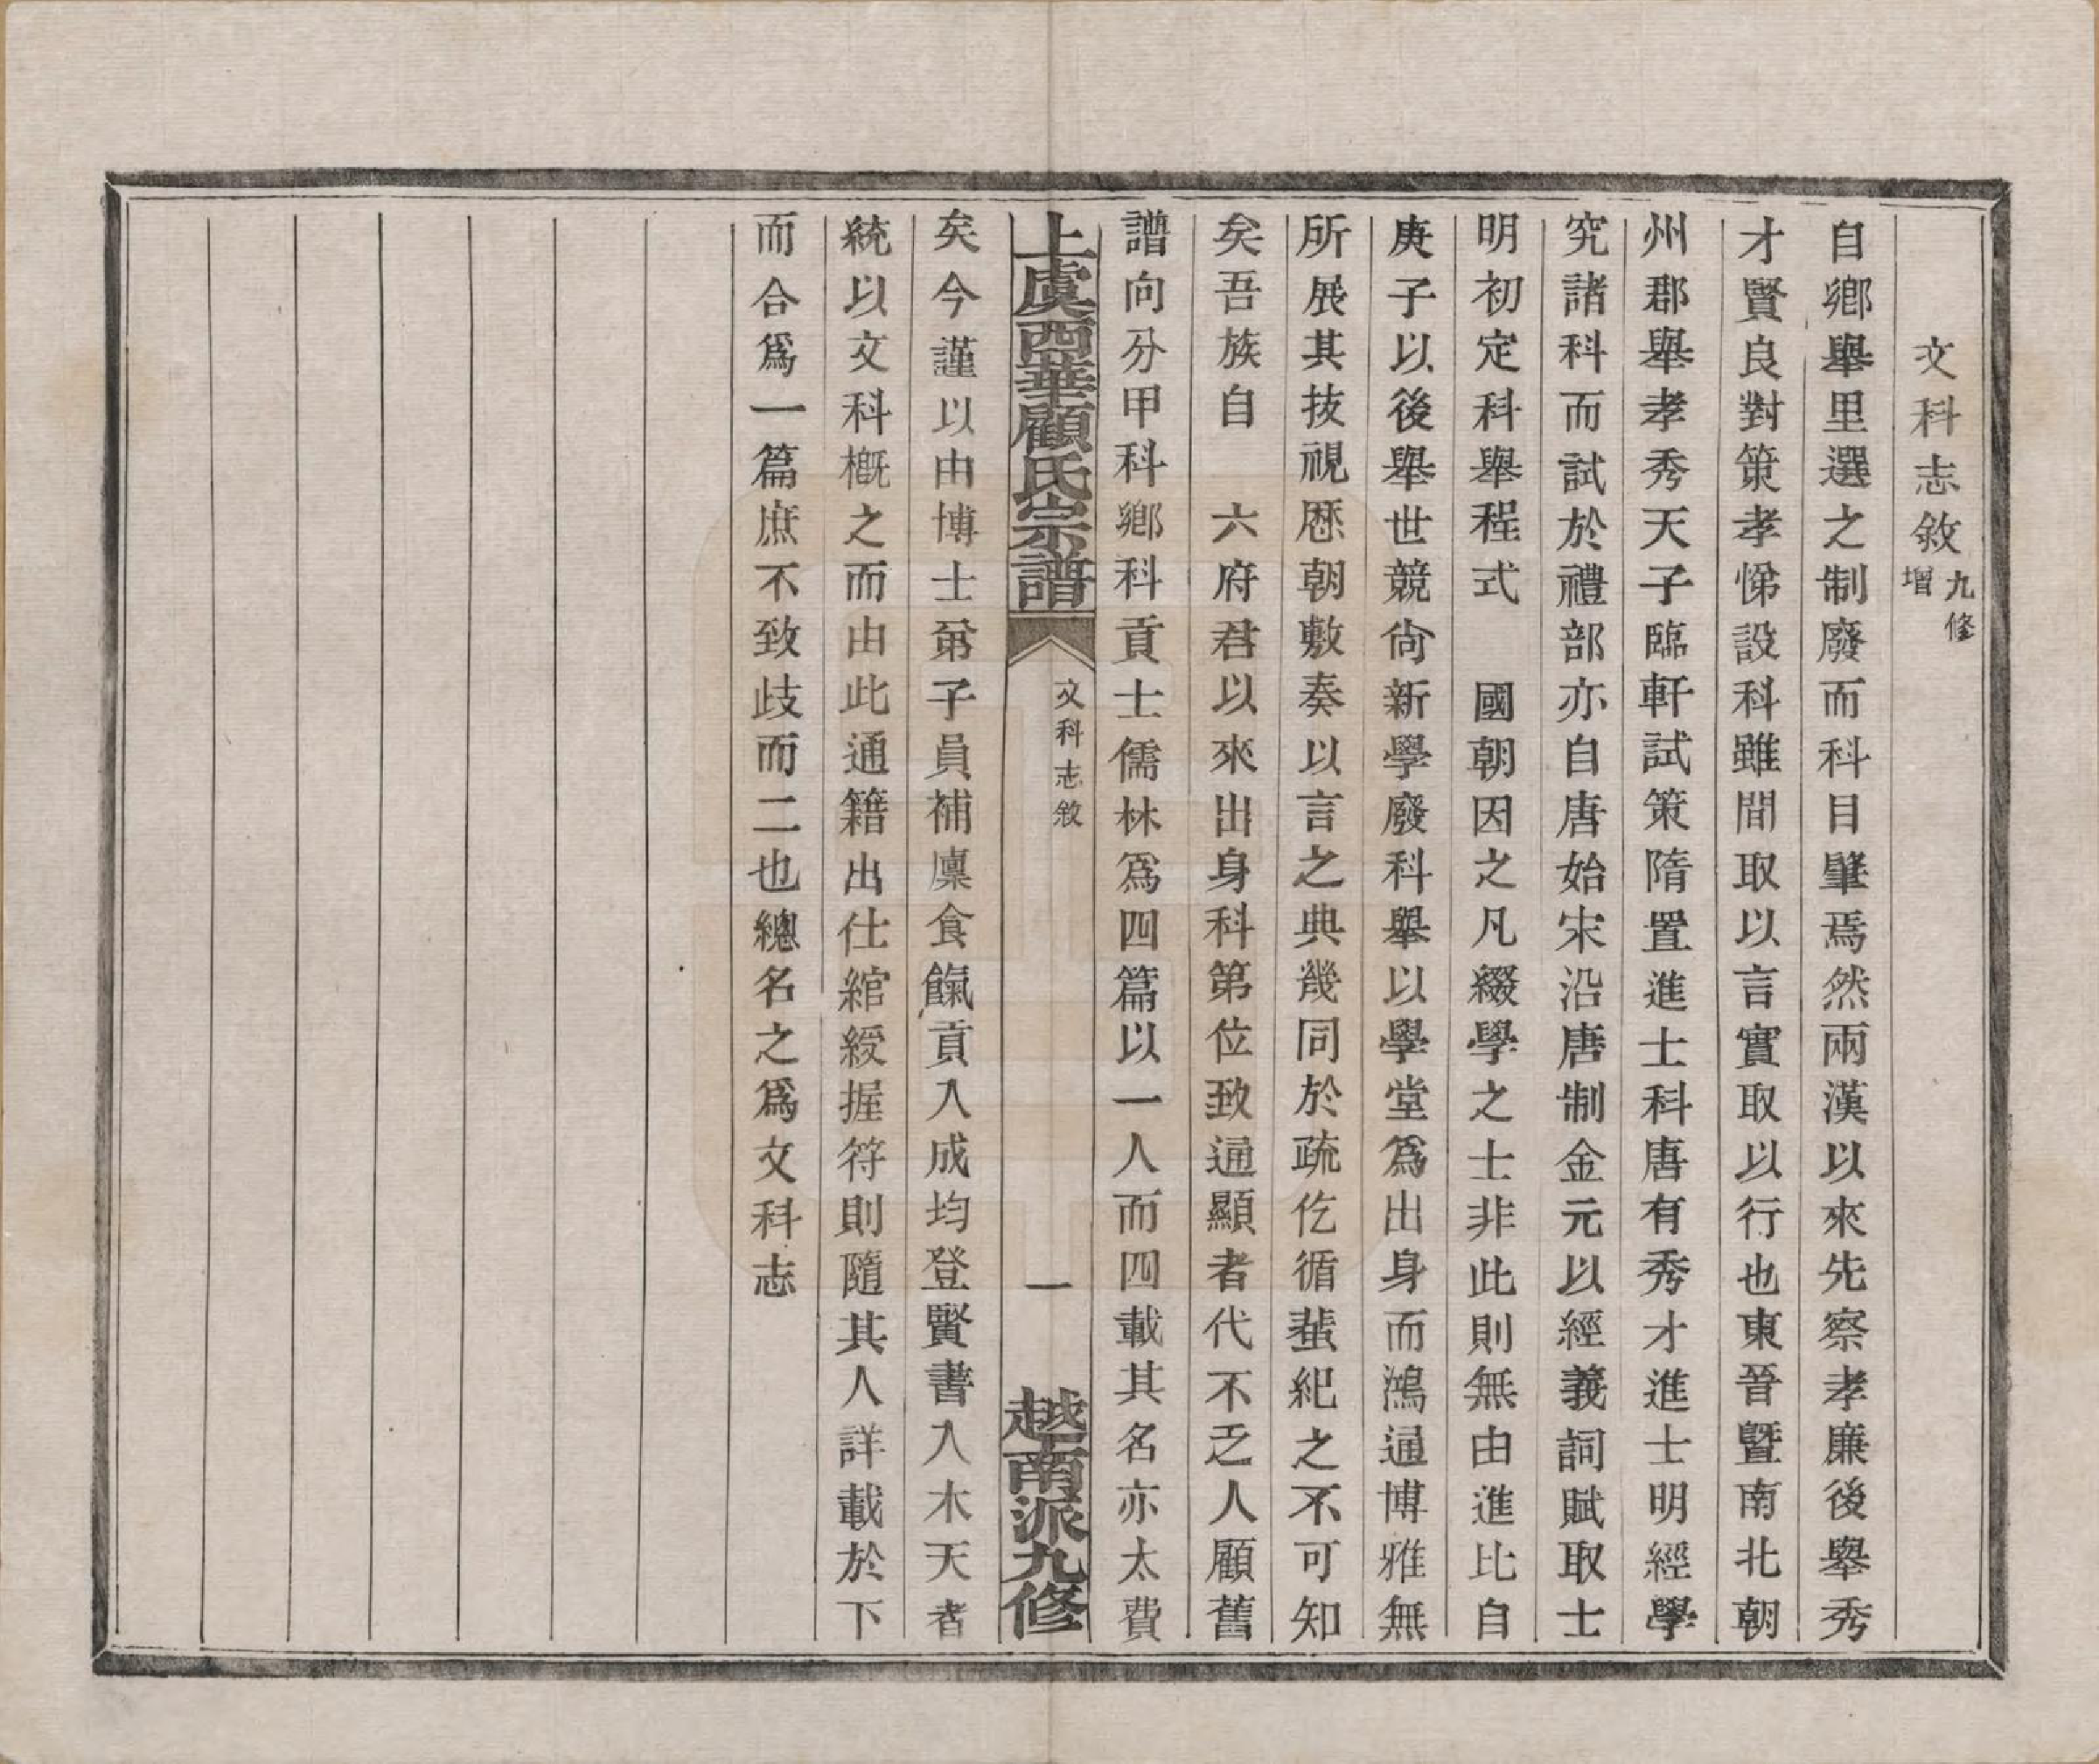 文科志敘九修增
自鄉舉里選之制廢而科目肇焉然兩漢以來先察孝廉後舉秀
才賢良對策孝悌設科雖間取以言實取以行也東晉暨南北朝
州郡舉孝秀天子臨軒試策隋置進士科唐有秀才進士明經學
究諸科而試於禮部亦自唐始宋沿唐制金元以經義詞賦取士
明初定科舉程式　國朝因之凡綴學之士非此則無由進比自
庚子以後舉世競尙新學廢科舉以學堂爲出身而鴻通博雅無
所展其技視歷朝敷奏以言之典幾同於疏仡循蜚紀之不可知
矣吾族自　六府君以來出身科第位致通顯者代不乏人顧舊
譜向分甲科鄉科貢士儒林爲四篇以一人而四載其名亦太費
上虞西華顧氏宗譜
文科志敘
一
越南派九修
矣今謹以由博士弟子員補廩食餼貢入成均登賢書入木天者
統以文科槪之而由此通籍出仕綰綬握符則隨其人詳載於下
而合爲一篇庶不致歧而二也總名之爲文科志